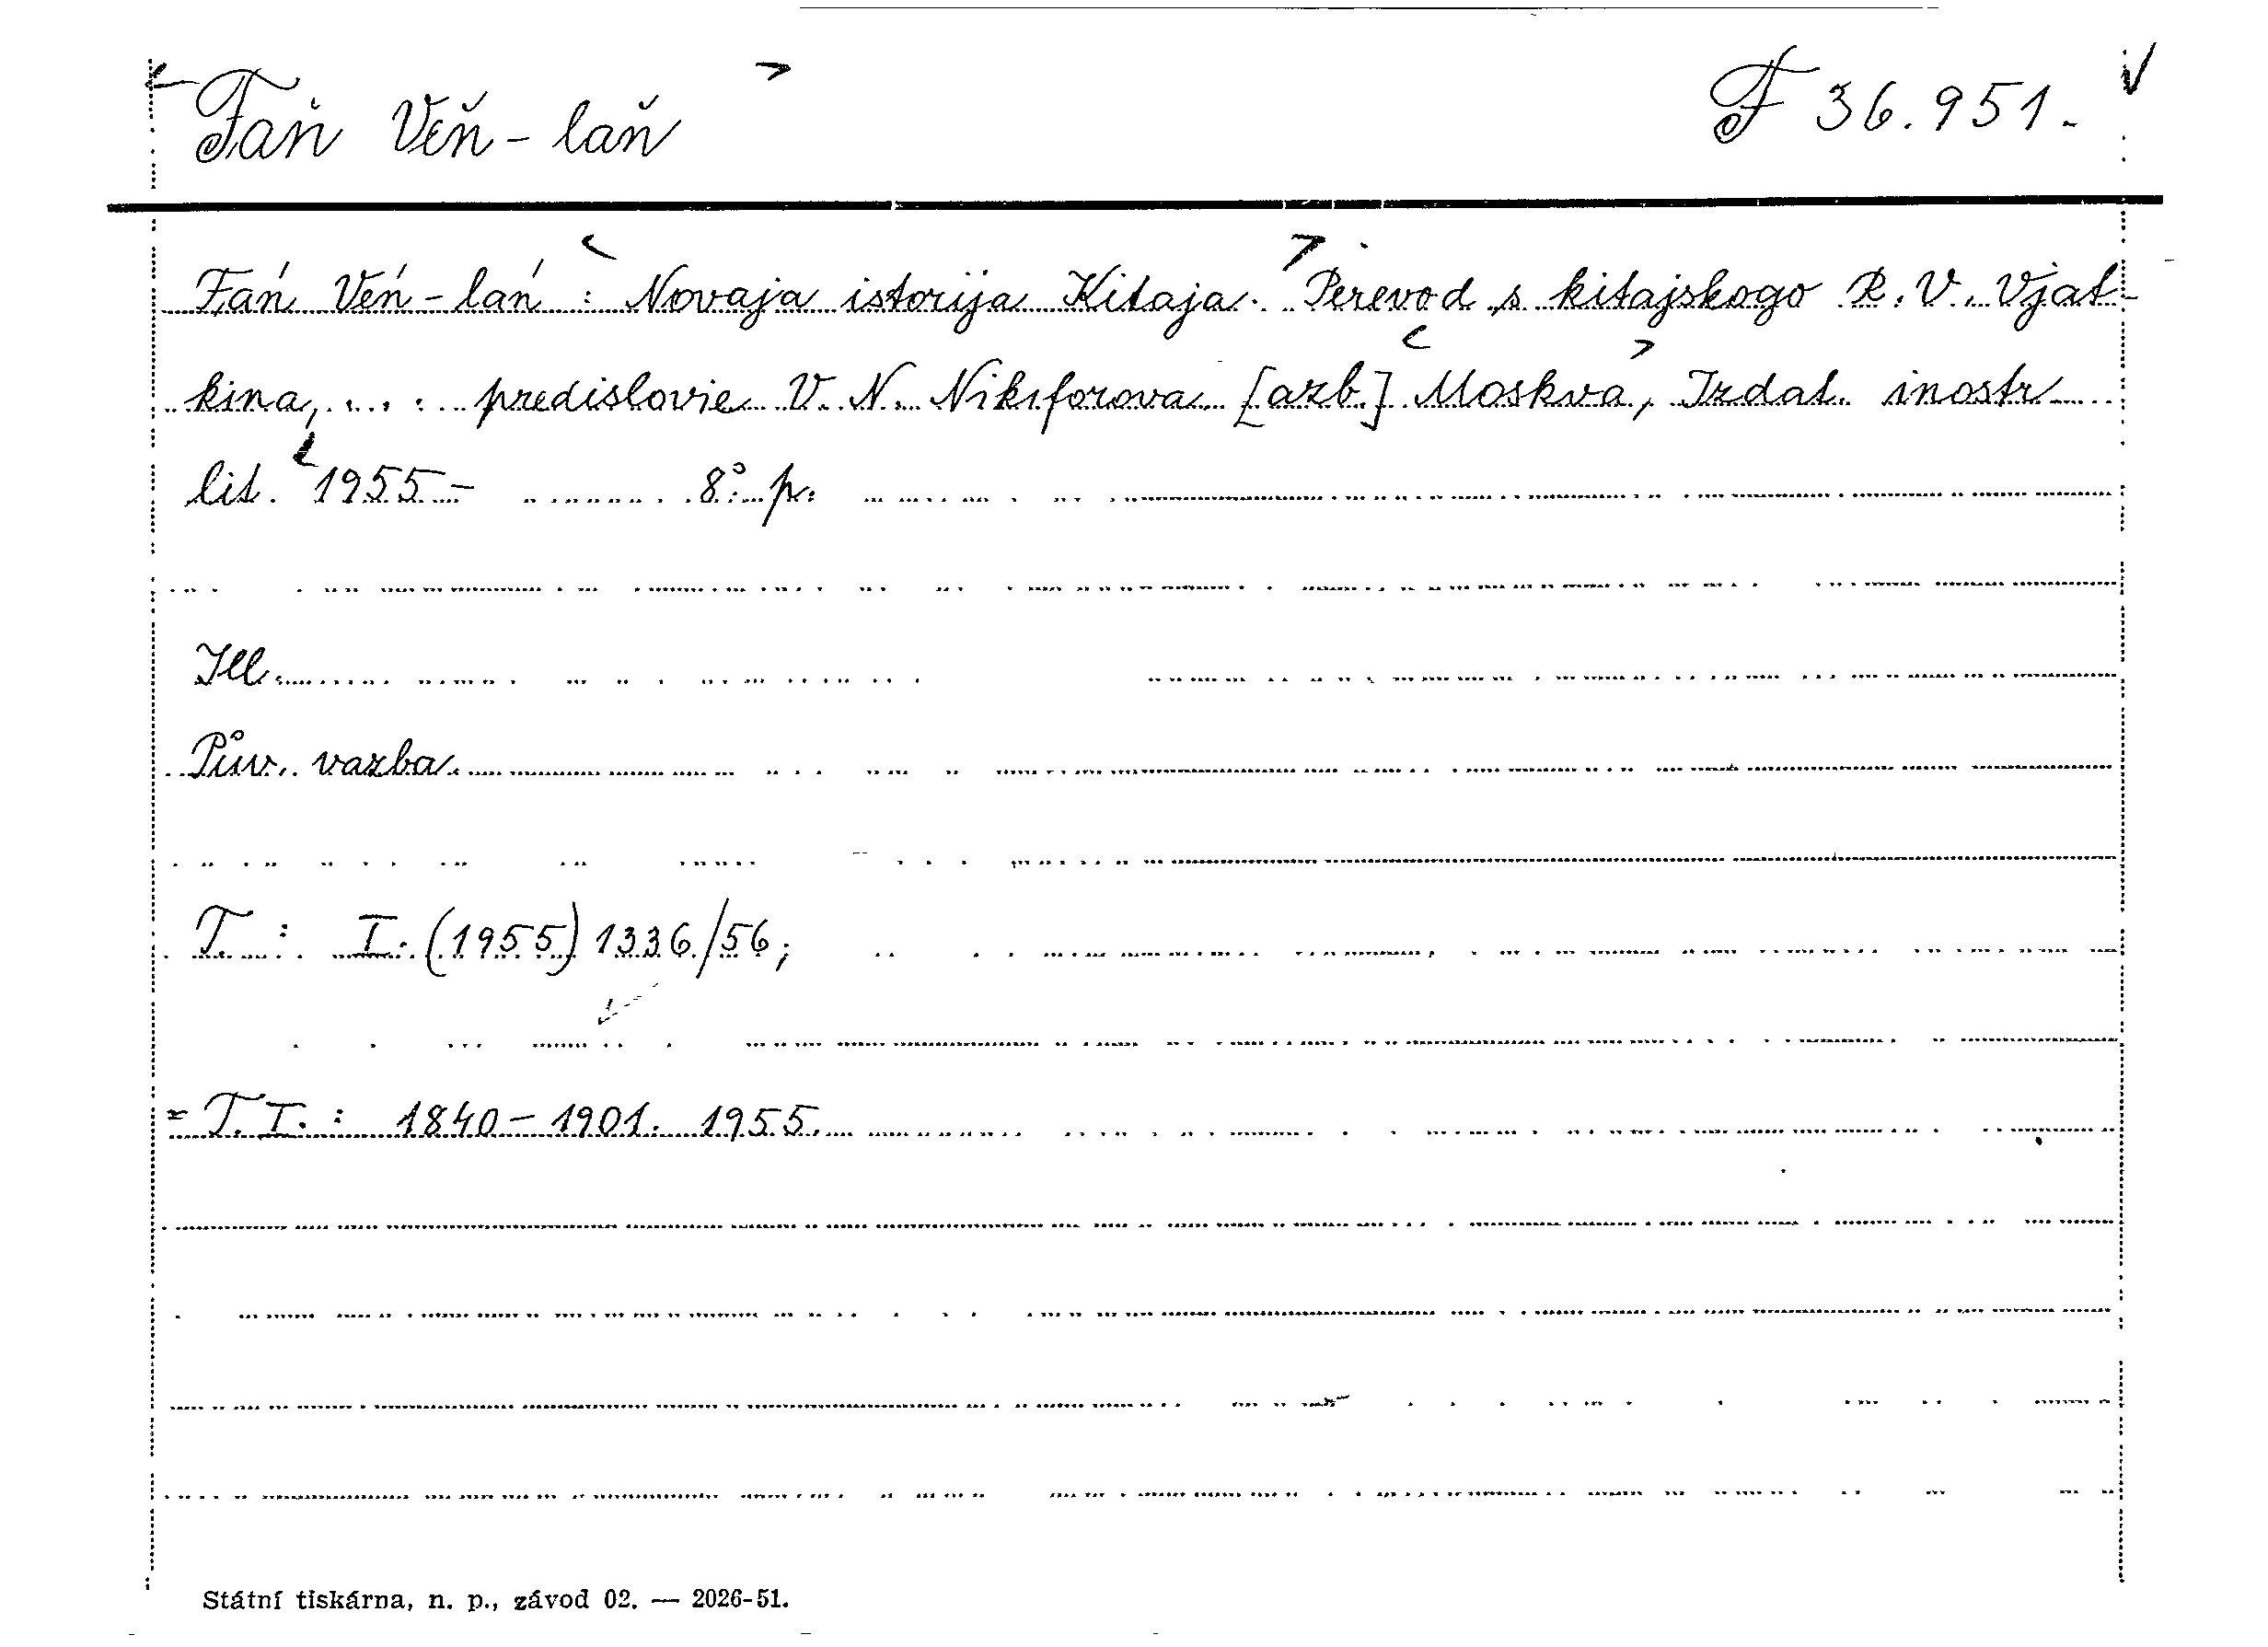 Faň Věň-laň F 36.951.
Fań Veń-lań: Novaja istorija Kitaja. Perevod s kitajskogo R. V. Vjat-
kina, ... predislovie V. N. Nikiforova [azb.] Moskva, Izdat. inostr
lit. 1955- 8° p.
Ill.
Pův. vazba.
T. : I. (1955) 1336/56;
= T. I. : 1840-1901. 1955.
Státní tiskárna, n. p., závod 02. — 2026-51.